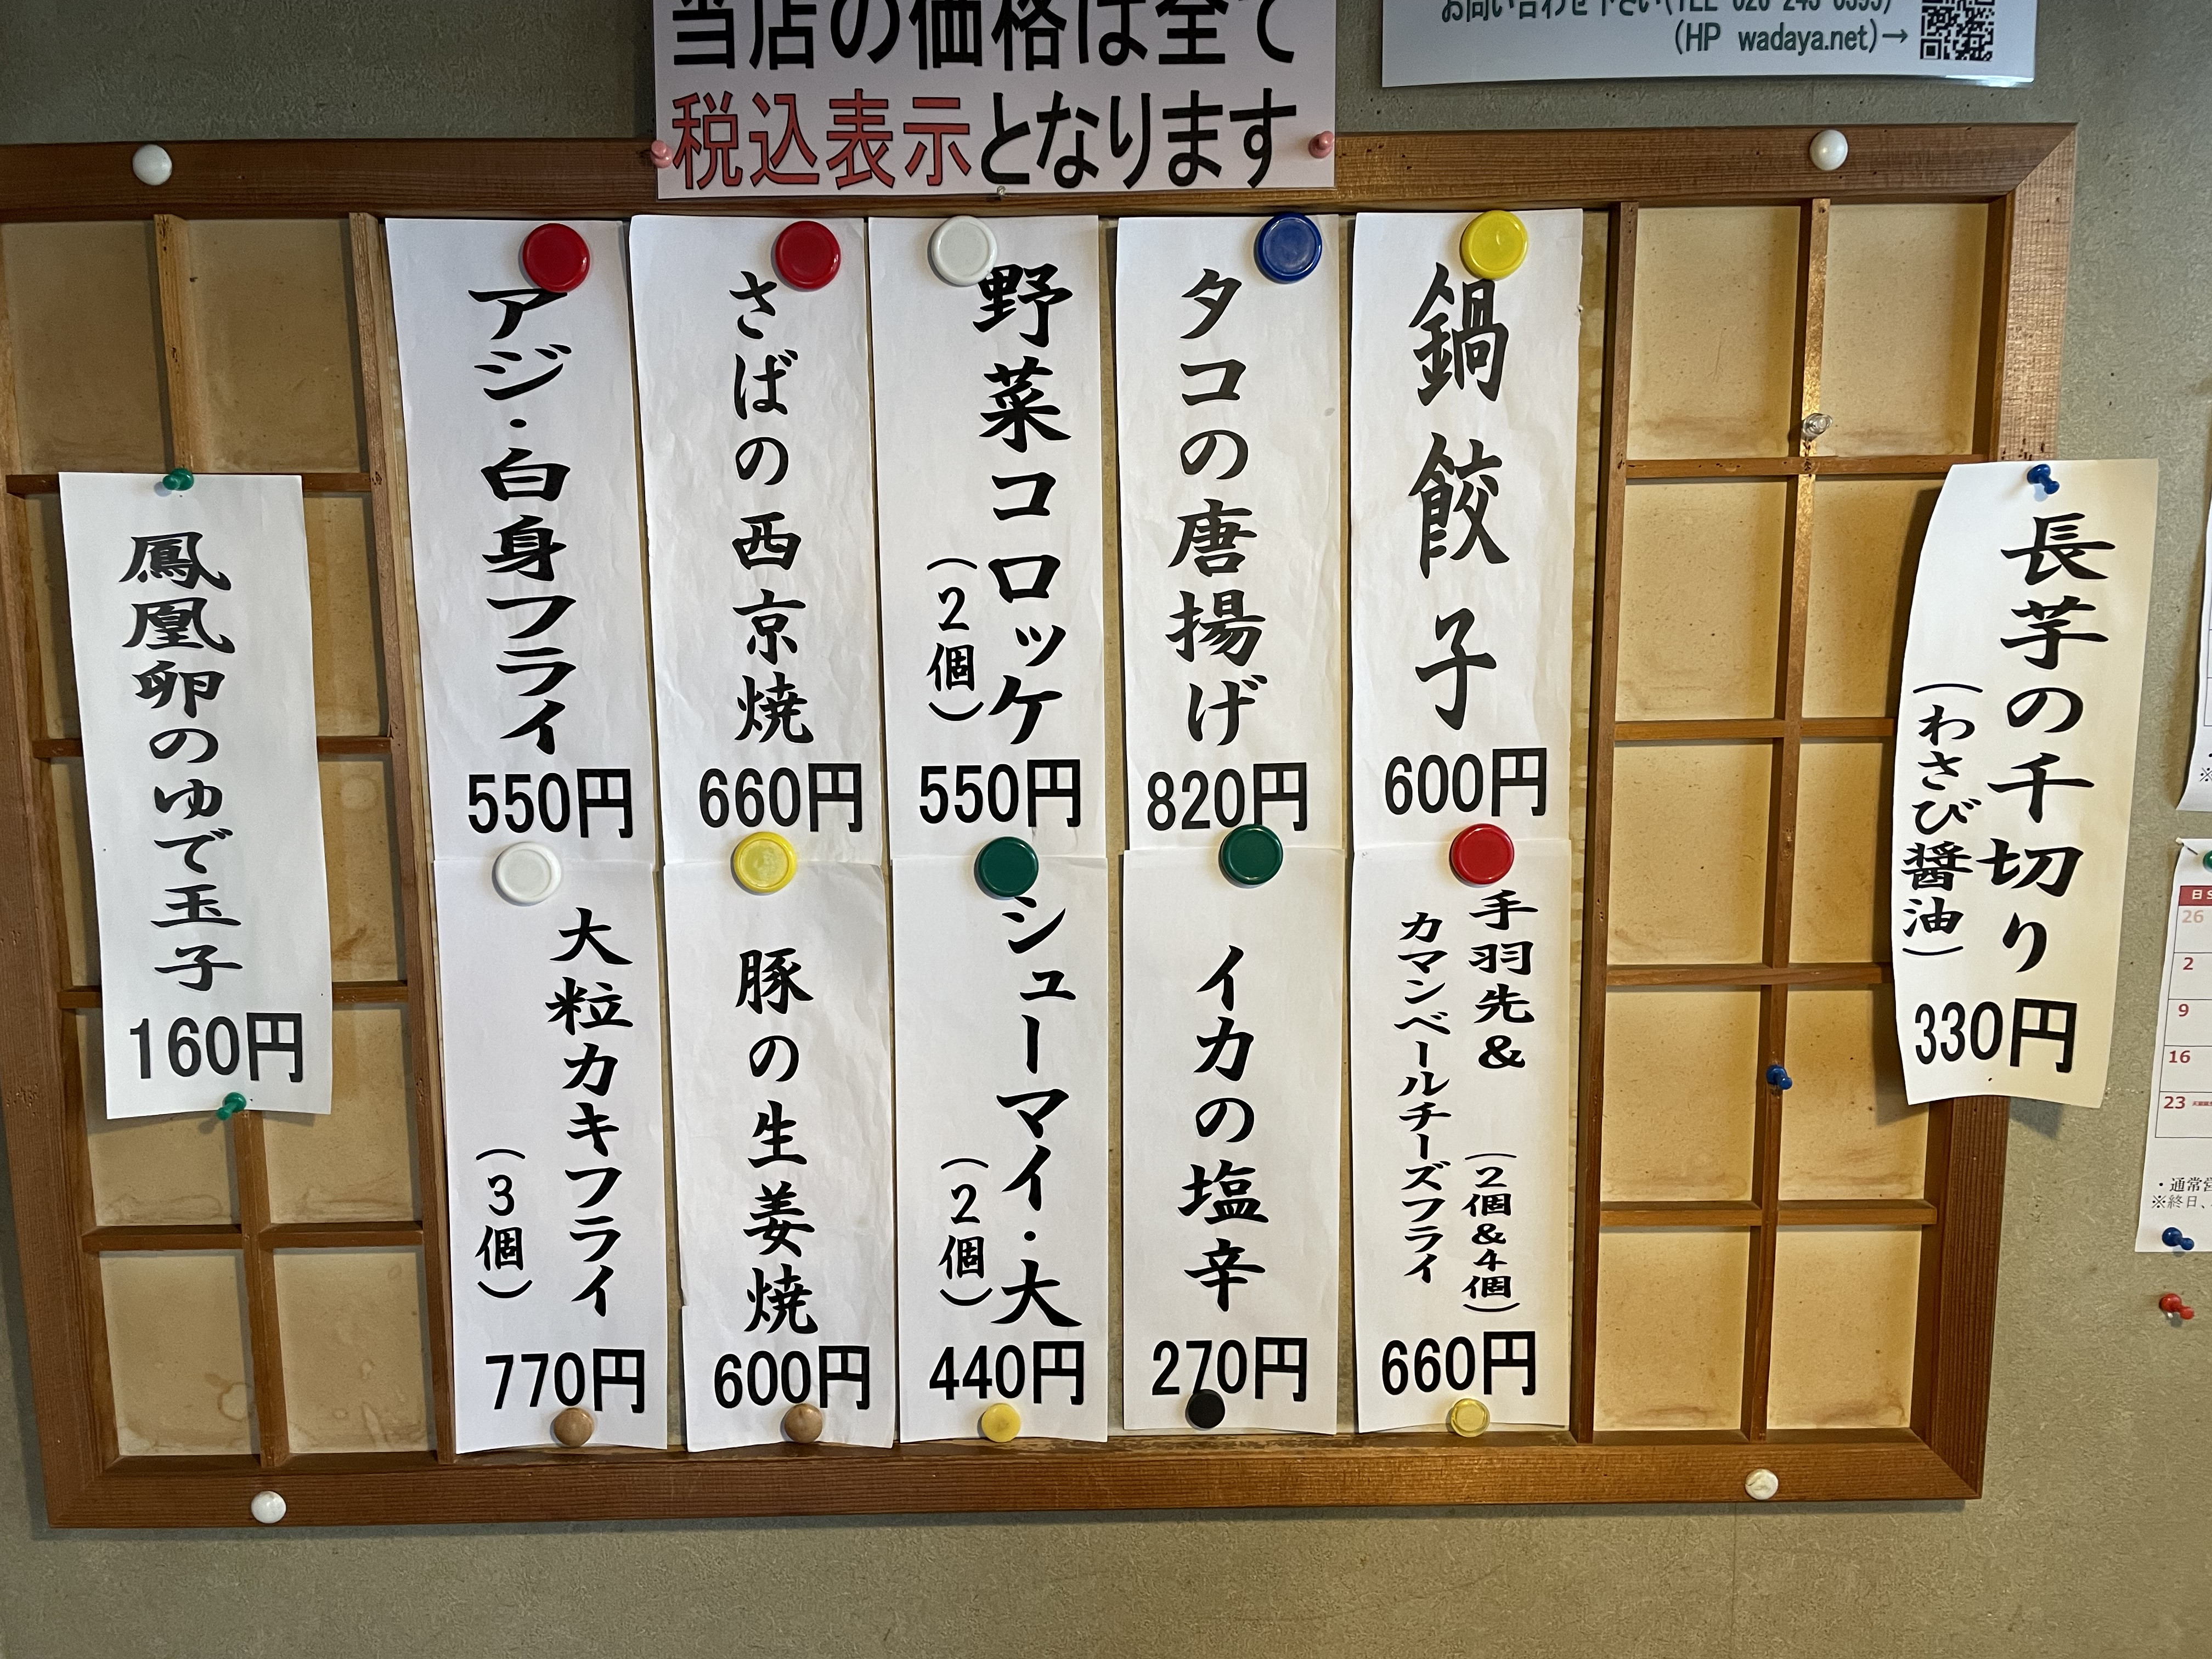 当店の価格は全て
税込表示となります
(HP wadaya.net)→
長芋の千切り
(わさび醤油)
330円
鍋餃子
600円
タコの唐揚げ
820円
野菜コロッケ
(2個)
550円
さばの西京焼
660円
アジ・白身フライ
550円
手羽先& (2個&4個)
カマンベールチーズフライ
660円
イカの塩辛
270円
シューマイ・大
(2個)
440円
豚の生姜焼
600円
大粒カキフライ
(3個)
770円
鳳凰卵のゆで玉子
160円
日
26
2
9
16
23
・通常営
※終日、